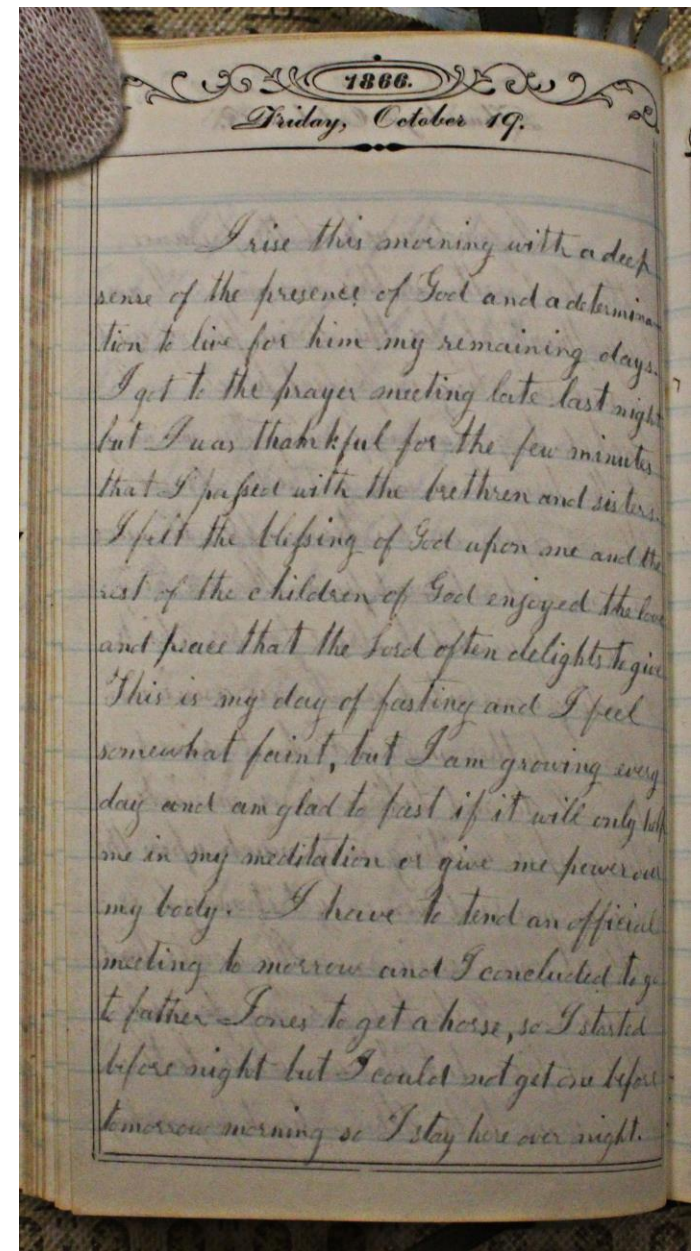 1866.
Friday, October 19.
I rise this morning with a deep
sense of the presence of God and a determina-
tion to live for him my remaining days.
I got to the prayer meeting late last night
but I was thankful for the few minutes
that I passed with the brethren and sisters.
I felt the blessing of God upon me and the
rest of the children of God enjoyed the love
and peace that the Lord often delights to give
This is my day of fasting and I feel
somewhat faint, but I am growing every
day and am glad to fast if it will only help
me in my meditation or give me power over
my body. I have to tend an official
meeting to morrow and I concluded to go
to father Jones to get a horse, so I started
before night but I could not get one before
tomorrow morning so I stay here over night.